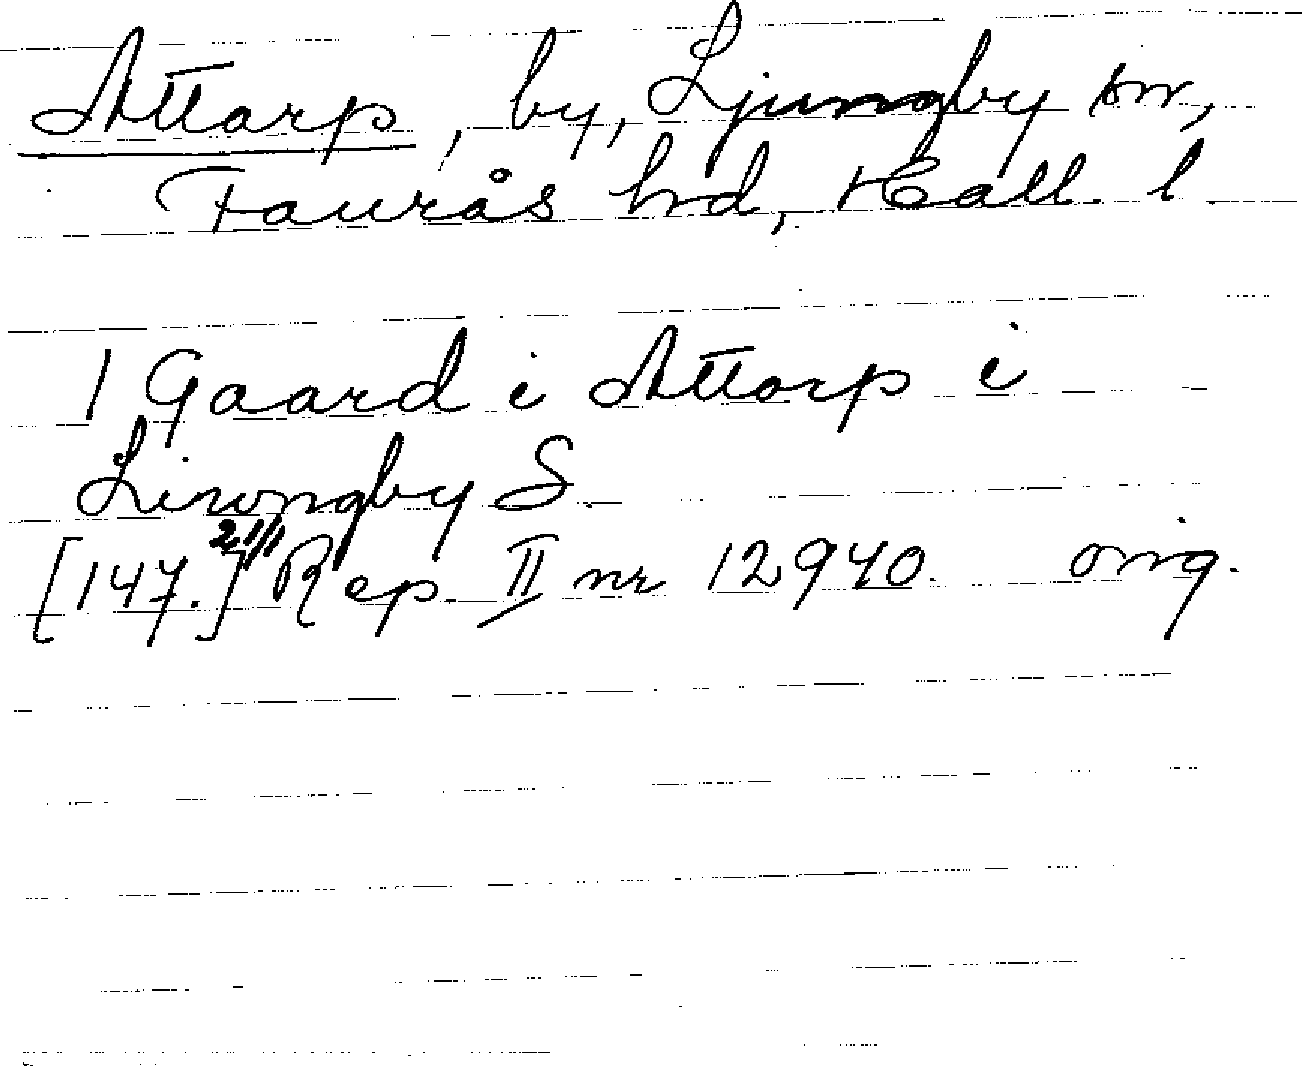 Attarp, by, Ljungby sn,
Faurås hd, Hall. l.
1 Gaard i Attarp i
Liwngby S.
[147.] Rep. II nr 12940. orig.